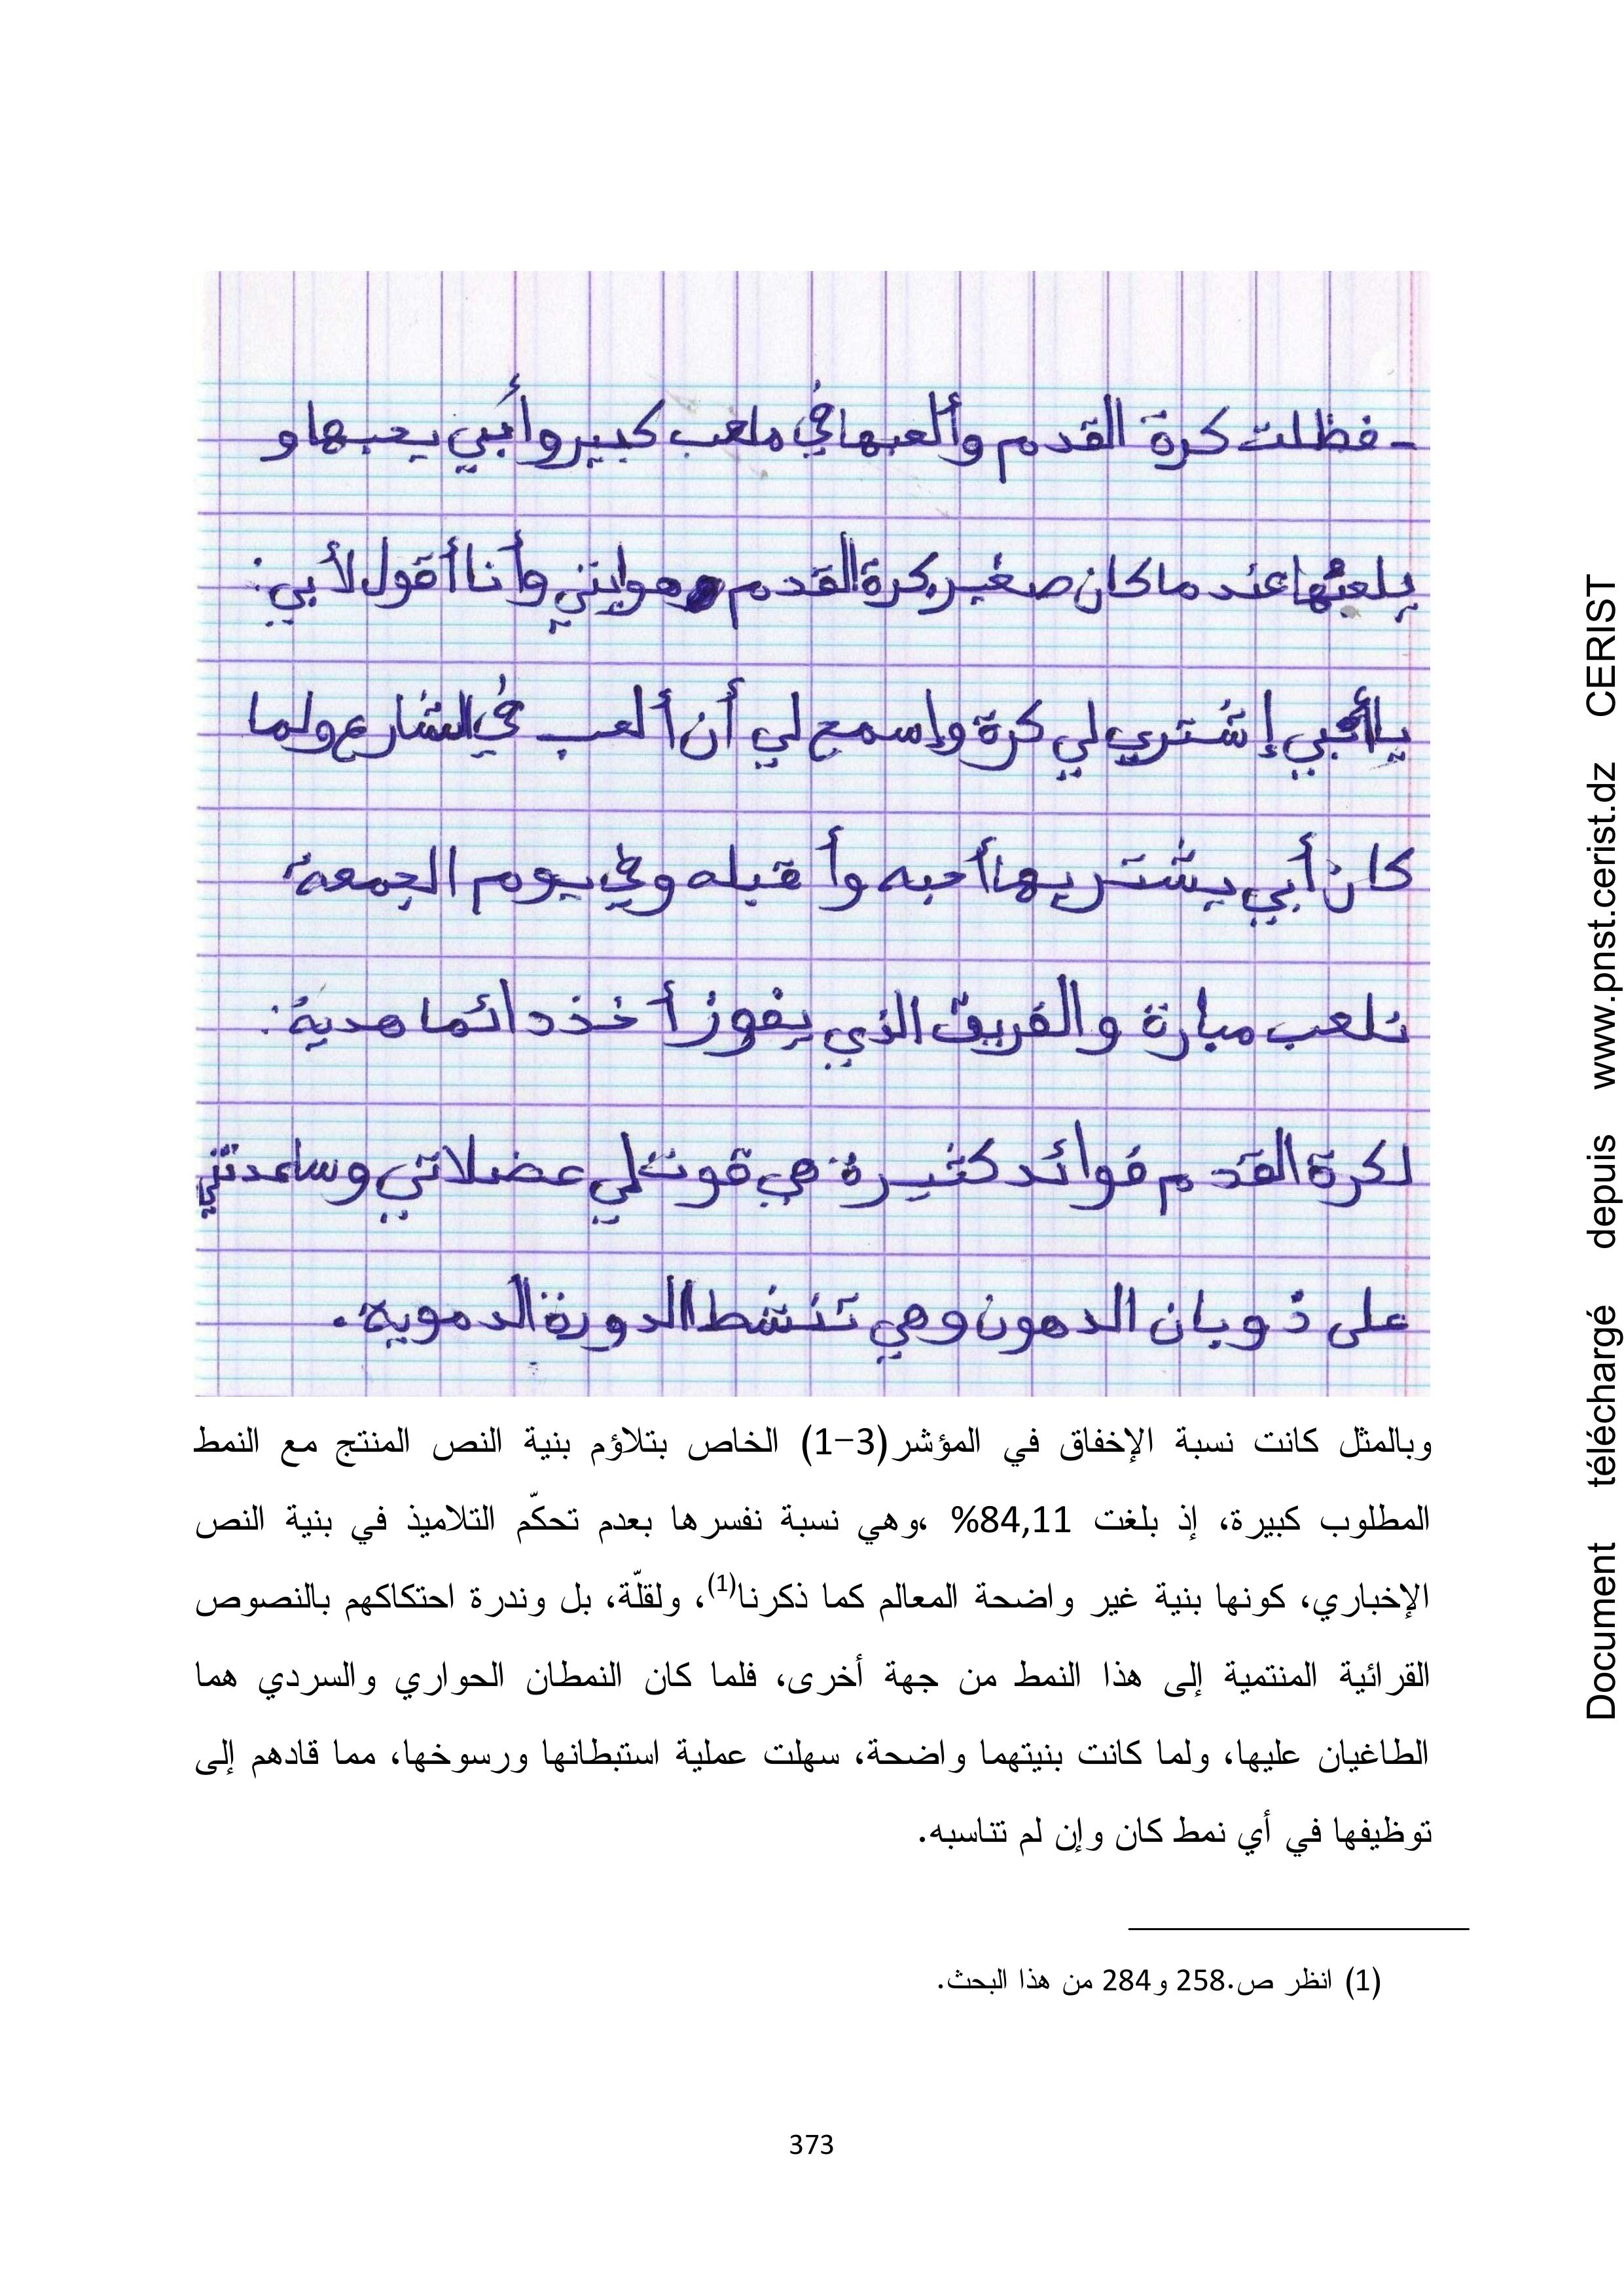 - فظلت كرة القدم وألعبها في ملعب كبير وأبي يحبها و
يلعبها عند ما كان صغير كرة القدم هوايتي وأنا أقول لأبي :
يا أبي إشتري لي كرة وإسمح لي أن ألعب في الشارع ولما
كان أبي يشتريها أحبه وأقبله وفي يوم الجمعة
نلعب مبارة والفريق الذي يفوز أخذ دائما هدية :
لكرة القدم فوائد كثيرة هي قوت لي عضلاتي وساعدتني
على ذوبان الدهون وهي تنشط الدورة الدموية .
وبالمثل كانت نسبة الإخفاق في المؤشر(3-1) الخاص بتلاؤم بنية النص المنتج مع النمط
المطلوب كبيرة، إذ بلغت 84,11% ،وهي نسبة نفسرها بعدم تحكّم التلاميذ في بنية النص
الإخباري، كونها بنية غير واضحة المعالم كما ذكرنا(1)، ولقلّة، بل وندرة احتكاكهم بالنصوص
القرائية المنتمية إلى هذا النمط من جهة أخرى، فلما كان النمطان الحواري والسردي هما
الطاغيان عليها، ولما كانت بنيتهما واضحة، سهلت عملية استبطانها ورسوخها، مما قادهم إلى
توظيفها في أي نمط كان وإن لم تتاسبه.
(1) انظر ص.258 و284 من هذا البحث.
373
Document téléchargé depuis www.pnst.cerist.dz CERIST